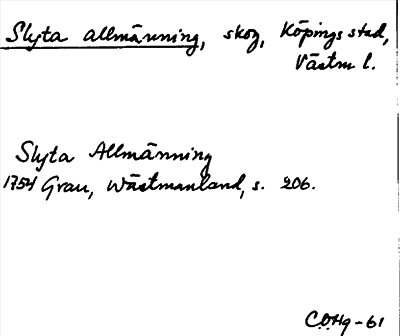 Slyta allmänning, skog, Köpings stad,
Västm l.
Slyta Allmänning
1754 Grau, Wästmanland, s. 206.
C.O.Hg-61